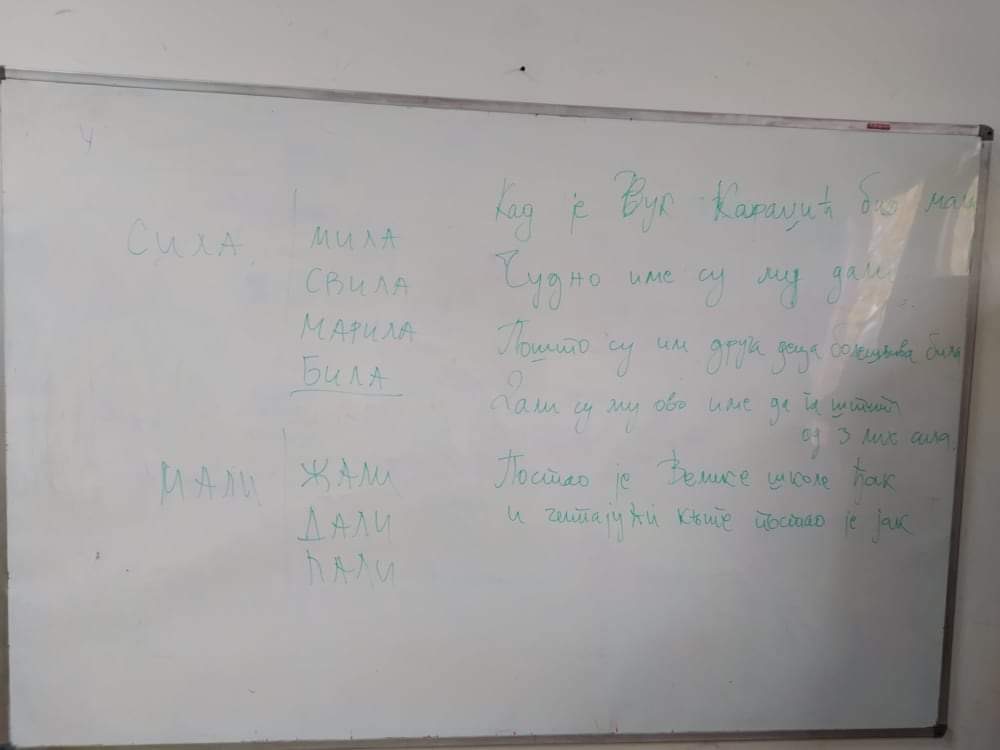 СИЛА
МИЛА
СВИЛА
МАРИЛА
БИЛА
МАЛИ
ЖАЛИ
ДАЛИ
ПАЛИ
Кад је Вук Караџић био мали
Чудно име су му дали
Пошто су им друга деца болешљива била
Дали су му ово име да га штити
од 3лих сила.
Постао је Велике школе ђак
и читајући књиге постао је јак